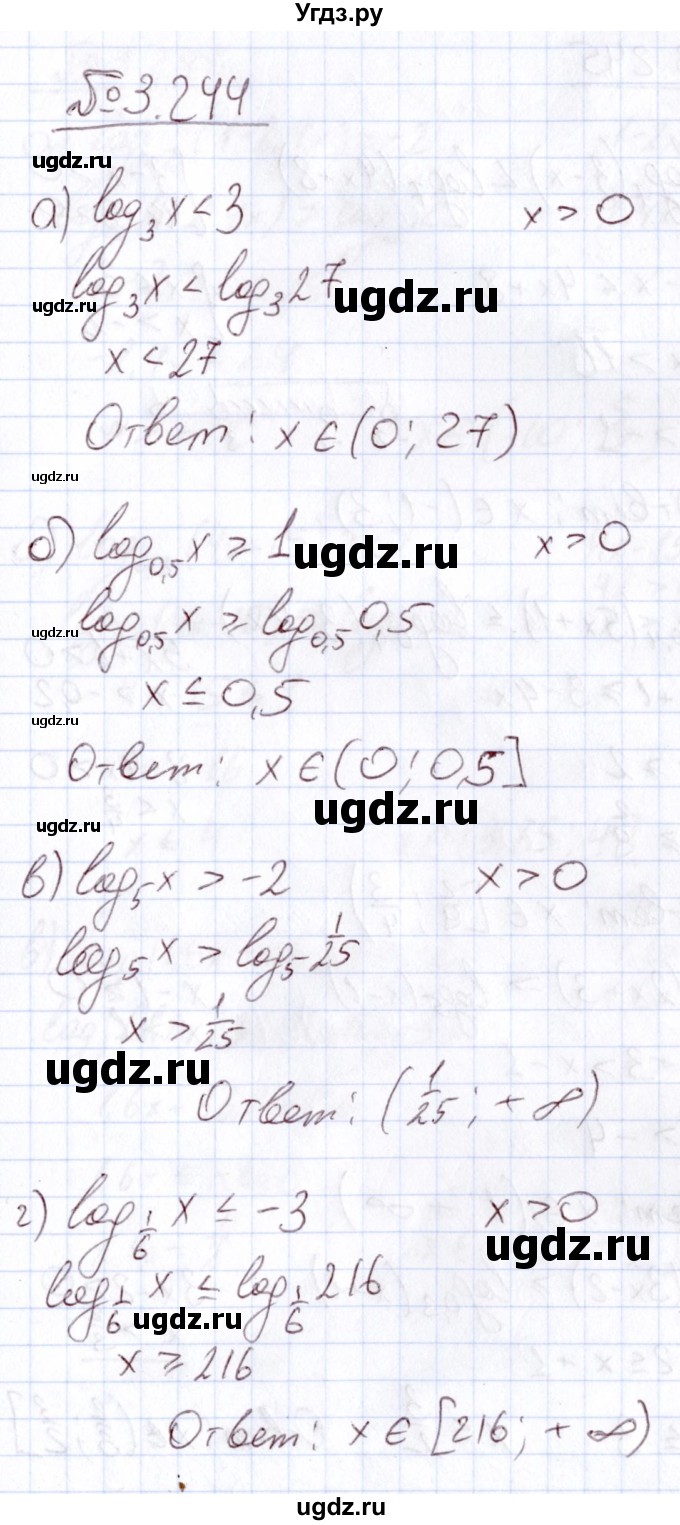 Угдз.ру
№3.244
ugdz.ru
а) log₃x < 3 x > 0
ugdz.ru
log₃x < log₃27
ugdz.ru
x < 27
Ответ: x ∈ (0; 27)
ugdz.ru
б) log₀,₅x ≥ 1 x > 0
ugdz.ru
ugdz.ru
log₀,₅x ≥ log₀,₅0,5
x ≤ 0,5
ugdz.ru
Ответ: x ∈ (0; 0,5]
ugdz.ru
ugdz.ru
в) log₅x > -2 x > 0
log₅x > log₅ 1/25
x > 1/25
ugdz.ru
Ответ: (1/25; +∞)
г) log_{1/6} x ≤ -3 x > 0
ugdz.ru
log_{1/6} x ≤ log_{1/6} 216
ugdz.ru
x ≥ 216
Ответ: x ∈ [216; +∞)
ugdz.ru